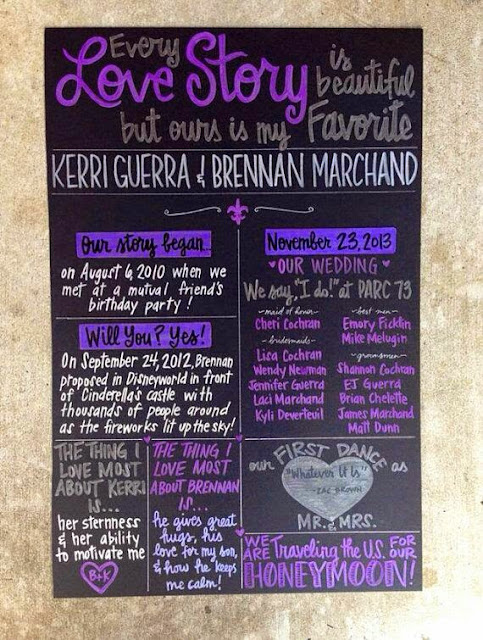 Every
Love Story is
beautiful
but ours is my Favorite
KERRI GUERRA & BRENNAN MARCHAND
our story began
on August 6, 2010 when we
met at a mutual friend's
birthday party!
Will You? Yes!
On September 24, 2012, Brennan
proposed in Disneyworld in front
of Cinderella's castle with
thousands of people around
as the fireworks lit up the sky!
November 23, 2013
OUR WEDDING
We say, "I do!" at PARC 73
maid of honor
Cheri Cochran
bridesmaids
Lisa Cochran
Wendy Newman
Jennifer Guerra
Laci Marchand
Kyli Deverteuil
best men
Emory Ficklin
Mike Melugin
groomsmen
Shannon Cochran
EJ Guerra
Brian Chelette
James Marchand
Matt Dunn
THE THING I
LOVE MOST
ABOUT KERRI
IS...
her sternness
& her ability
to motivate me
B+K
THE THING I
LOVE MOST
ABOUT BRENNAN
IS...
he gives great
hugs, his
love for my son,
& how he keeps
me calm!
our FIRST DANCE as
"Whatever It Is"
-ZAC BROWN
MR. & MRS.
WE ARE Traveling the U.S. FOR OUR
HONEYMOON!